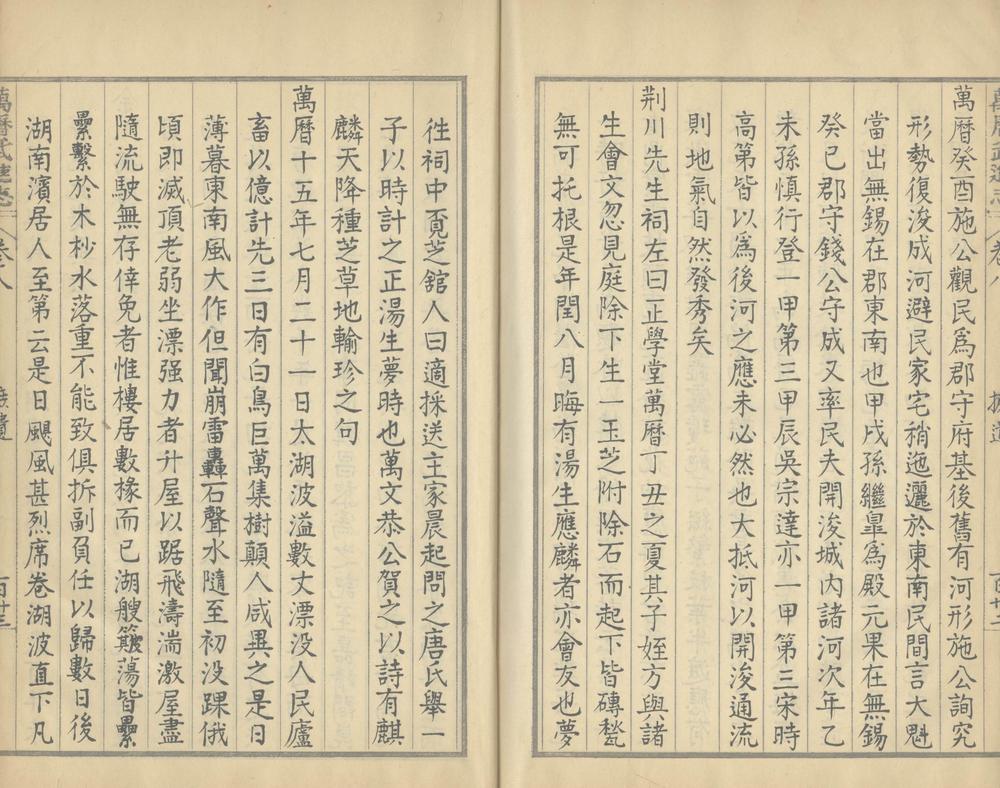 萬曆癸酉施公觀民爲郡守府基後舊有河形施公詢究
形勢復浚成河避民家宅稍迤邐於東南民間言大魁
當出無錫在郡東南也甲戌孫繼臯爲殿元果在無錫
癸巳郡守錢公守成又率民夫開浚城內諸河次年乙
未孫慎行登一甲第三甲辰吳宗達亦一甲第三宋時
高第皆以爲後河之應未必然也大抵河以開浚通流
則地氣自然發秀矣
荆川先生祠左曰正學堂萬曆丁丑之夏其子姪方與諸
生會文忽見庭除下生一玉芝附除石而起下皆磚甃
無可托根是年閏八月晦有湯生應麟者亦會友也夢
徃祠中覓芝舘人曰適採送主家晨起問之唐氏舉一
子以時計之正湯生夢時也萬文恭公賀之以詩有麒
麟天降種芝草地輸珍之句
萬曆十五年七月二十一日太湖波溢數丈漂没人民廬
畜以億計先三日有白鳥巨萬集樹顛人咸異之是日
薄暮東南風大作但聞崩雷轟石聲水隨至初没踝俄
頃即滅頂老弱坐漂强力者升屋以踞飛濤湍激屋盡
隨流駛無存倖免者惟樓居數椽而已湖艘簸蕩皆纍
纍繫於木杪水落重不能致俱拆副負任以歸數日後
湖南濱居人至第云是日颶風甚烈席卷湖波直下凡